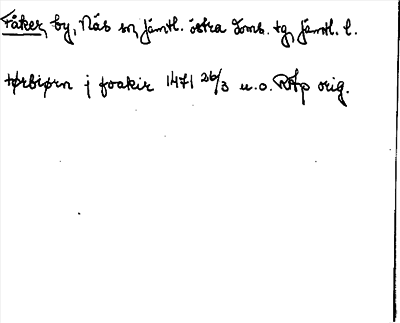 Fåker, by, Näs sn, Jämtl. östra doms. tg, Jämtl. l.
tørbiørn j foakir 1471 26/3 u.o. RAp orig.